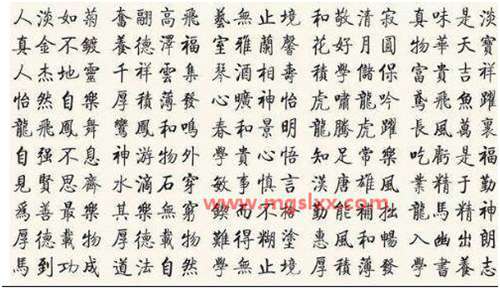 人淡如菊 奮翮高飛 藝無止境 和敬清寂 真味是淡
真金不鍍 養德澤福 室雅蘭馨 花好月圓 物華天寶
人杰地靈 千祥雲集 琴酒相壽 積學儲保 富貴吉祥
怡然自樂 厚積薄發 心曠神怡 虎嘯龍吟 鳶飛魚躍
龍飛鳳舞 鸞鳳和鳴 春和景明 龍騰虎躍 長風萬里
自强不息 神游物外 學貴心悟 知足常樂 吃虧是福
見賢思齊 水滴石穿 敏事慎言 漢唐雄風 業精于勤
爲善最樂 其樂無窮 鍥而不舍 勤能補拙 龍馬精神
www.mgslxx.com
厚德載物 厚德載物 難得糊塗 惠風和暢 入幽出朗
馬到功成 道法自然 學無止境 厚積薄發 學書養志